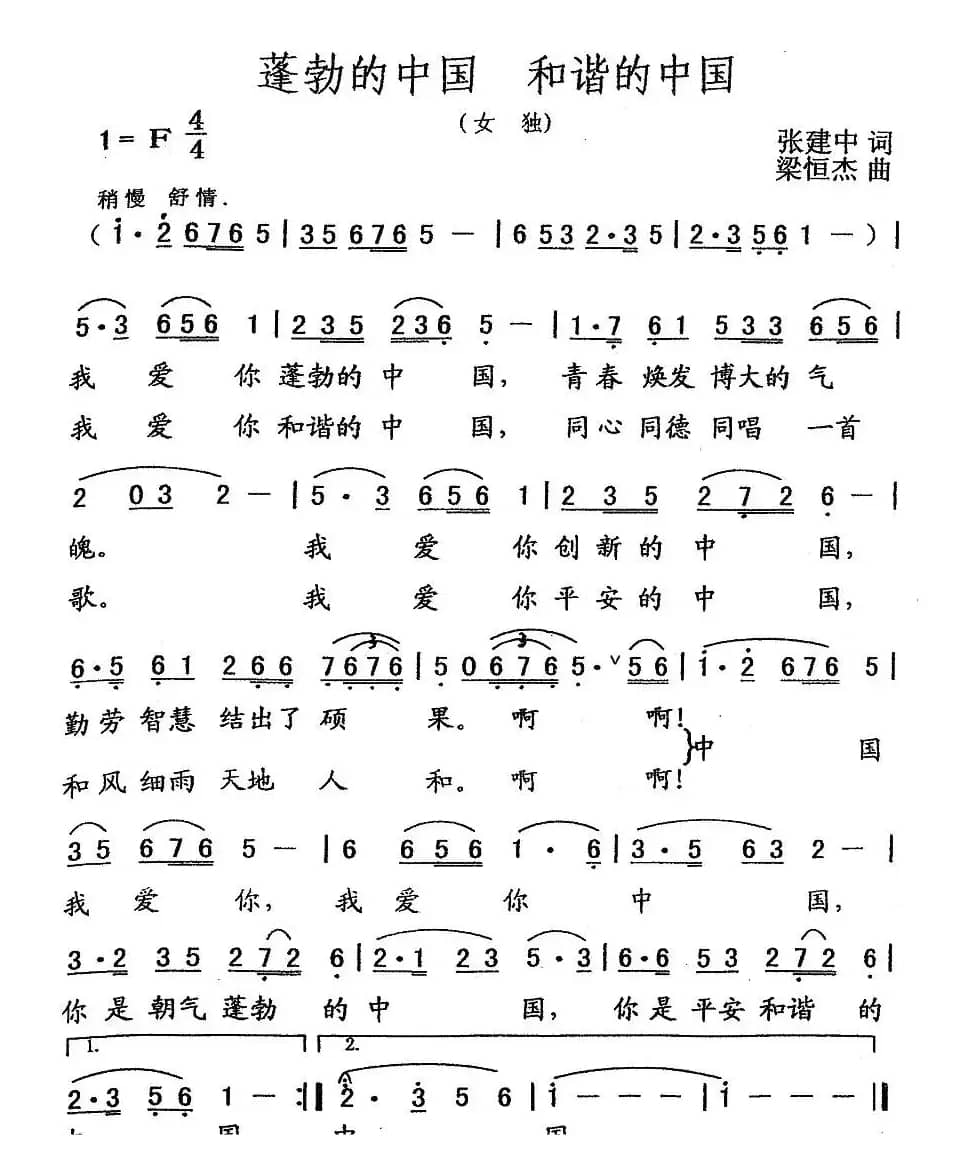 蓬勃的中国　和谐的中国
(女　独)
1= F 4/4
张建中 词
梁恒杰 曲
稍慢 舒情.
( 1· 2 6765 | 35 6765 — | 6 53 2·3 5 | 2·3 56 1 — ) |
5·3 656 1 | 235 236 5 — | 1·7 61 533 656 |
我 爱 你 蓬勃的 中 国, 青春 焕发 博大的 气
我 爱 你 和谐的 中 国, 同心 同德 同唱 一首
2 03 2 — | 5·3 656 1 | 235 272 6 — |
魄。 我 爱 你 创新的 中 国,
歌。 我 爱 你 平安的 中 国,
6·5 61 266 7676 | 5 0 676 5· ˅ 56 | 1·2 676 5 |
勤劳 智慧 结出了 硕 果。 啊 啊!
}中 国
和风 细雨 天地 人 和。 啊 啊!
35 676 5 — | 6 656 1· 6 | 3·5 63 2 — |
我 爱 你, 我 爱 你 中 国,
3·2 35 272 6 | 2·1 23 5·3 | 6·6 53 272 6 |
你是 朝气 蓬勃 的 中 国, 你是 平安 和谐 的
1. 2.
2·3 56 1 — :‖ 2· 3 5 6 | 1 — — — | 1 — — — ‖
国 中 国